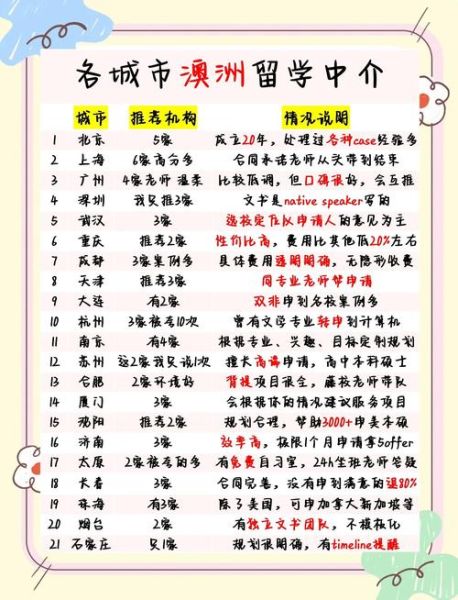 各城市澳洲留学中介
城市 推荐机构 情况说明
1 北京 5家 成立20年，处理过各种case经验多
2 上海 6家高分多 合同承诺老师从头带到结束
3 广州 4家老师温柔 比较低调，但口碑很好，会互推
4 深圳 我只推3家 文书是native speaker写的
5 武汉 3家 选校定位以申请人的意见为主
6 重庆 推荐2家 性价比高，费用比其他低20%左右
7 成都 3家案例多 具体费用透明明确，无隐形收费
8 天津 推荐3家 同专业老师帮申请
9 大连 有2家 双非申到名校案例多
10 杭州 3家被夸10次 曾有文学专业转申到计算机
11 南京 有4家 根据专业、兴趣、目标定制规划
12 苏州 这2家我只说1次 擅长高端申请，高中本科硕士
13 合肥 2家环境好 背提项目很全，藤校老师带队
14 厦门 3家 会根据你的情况建议服务项目
15 沈阳 推荐2家 规划合理，帮助3000+申美本硕
16 济南 3家 效率高，极限1个月申请拿5offer
17 太原 2家被夸的多 有免费自习室，24h坐班老师答疑
18 长春 3家 合同完善，没有申到满意的退80%
19 珠海 有3家 除了美国，可申加拿大新加坡等
20 烟台 2家 有独立文书团队，不模板化
21 石家庄 只1家 规划很明确，有timeline提醒